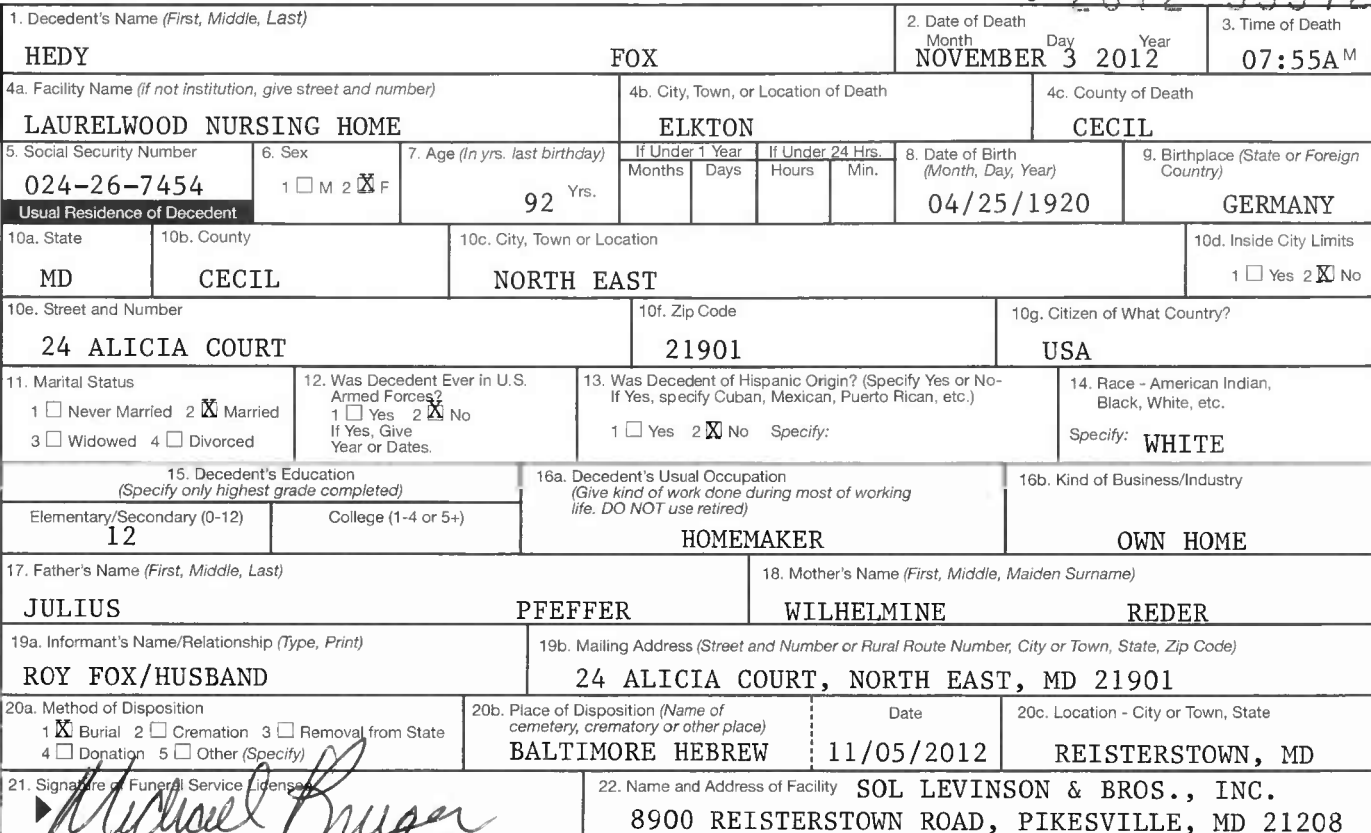 1. Decedent's Name (First, Middle, Last)
HEDY FOX
2. Date of Death
Month Day Year
NOVEMBER 3 2012
3. Time of Death
07:55A M
4a. Facility Name (if not institution, give street and number)
LAURELWOOD NURSING HOME
4b. City, Town, or Location of Death
ELKTON
4c. County of Death
CECIL
5. Social Security Number
024-26-7454
6. Sex
1 ☐ M 2 ☒ F
7. Age (In yrs. last birthday)
92 Yrs.
If Under 1 Year
Months Days
If Under 24 Hrs.
Hours Min.
8. Date of Birth
(Month, Day, Year)
04/25/1920
9. Birthplace (State or Foreign
Country)
GERMANY
Usual Residence of Decedent
10a. State
MD
10b. County
CECIL
10c. City, Town or Location
NORTH EAST
10d. Inside City Limits
1 ☐ Yes 2 ☒ No
10e. Street and Number
24 ALICIA COURT
10f. Zip Code
21901
10g. Citizen of What Country?
USA
11. Marital Status
1 ☐ Never Married 2 ☒ Married
3 ☐ Widowed 4 ☐ Divorced
12. Was Decedent Ever in U.S.
Armed Forces?
1 ☐ Yes 2 ☒ No
If Yes, Give
Year or Dates.
13. Was Decedent of Hispanic Origin? (Specify Yes or No-
If Yes, specify Cuban, Mexican, Puerto Rican, etc.)
1 ☐ Yes 2 ☒ No Specify:
14. Race - American Indian,
Black, White, etc.
Specify: WHITE
15. Decedent's Education
(Specify only highest grade completed)
Elementary/Secondary (0-12)
12
College (1-4 or 5+)
16a. Decedent's Usual Occupation
(Give kind of work done during most of working
life. DO NOT use retired)
HOMEMAKER
16b. Kind of Business/Industry
OWN HOME
17. Father's Name (First, Middle, Last)
JULIUS PFEFFER
18. Mother's Name (First, Middle, Maiden Surname)
WILHELMINE REDER
19a. Informant's Name/Relationship (Type, Print)
ROY FOX/HUSBAND
19b. Mailing Address (Street and Number or Rural Route Number, City or Town, State, Zip Code)
24 ALICIA COURT, NORTH EAST, MD 21901
20a. Method of Disposition
1 ☒ Burial 2 ☐ Cremation 3 ☐ Removal from State
4 ☐ Donation 5 ☐ Other (Specify)
20b. Place of Disposition (Name of
cemetery, crematory or other place)
BALTIMORE HEBREW
Date
11/05/2012
20c. Location - City or Town, State
REISTERSTOWN, MD
21. Signature of Funeral Service Licensee
Michael Kruger
22. Name and Address of Facility SOL LEVINSON & BROS., INC.
8900 REISTERSTOWN ROAD, PIKESVILLE, MD 21208